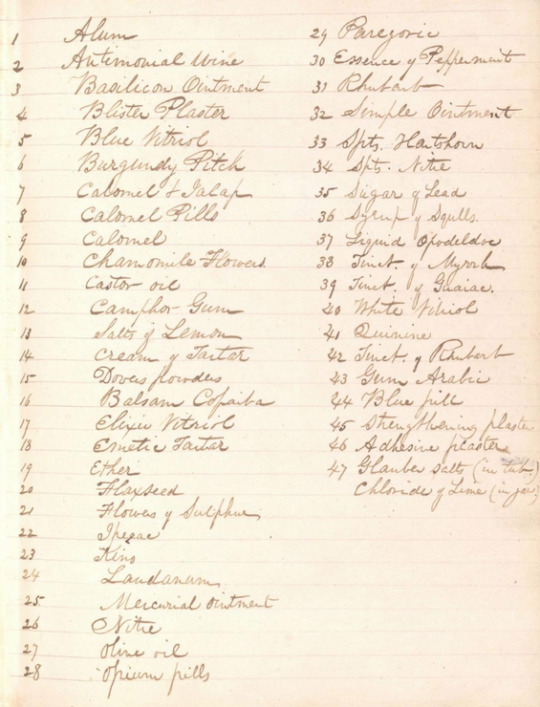 1 Alum
2 Antimonial Wine
3 Basilicon Ointment
4 Blister Plaster
5 Blue Vitriol
6 Burgundy Pitch
7 Calomel & Jalap
8 Calomel Pills
9 Calomel
10 Chamomile Flowers
11 Castor oil
12 Camphor Gum
13 Salts of Lemon
14 Cream of Tartar
15 Dovers powders
16 Balsam Copaiba
17 Elixir Vitriol
18 Emetic Tartar
19 Ether
20 Flaxseed
21 Flowers of Sulphur
22 Ipecac
23 Kino
24 Laudanum
25 Mercurial Ointment
26 Nitre
27 Olive oil
28 Opium pills
29 Paregoric
30 Essence of Peppermint
31 Rhubarb
32 Simple Ointment
33 Spts. Hartshorn
34 Spts. Nitre
35 Sugar of Lead
36 Syrup of Squills.
37 Liquid Opodeldoc
38 Tinct. of Myrrh
39 Tinct. of Guaiac.
40 White Vitriol
41 Quinine
42 Tinct. of Rhubarb
43 Gum Arabic
44 Blue pill
45 Strengthening plaster
46 Adhesive plaster
47 Glauber salts (in tub)
Chloride of Lime (in jar)